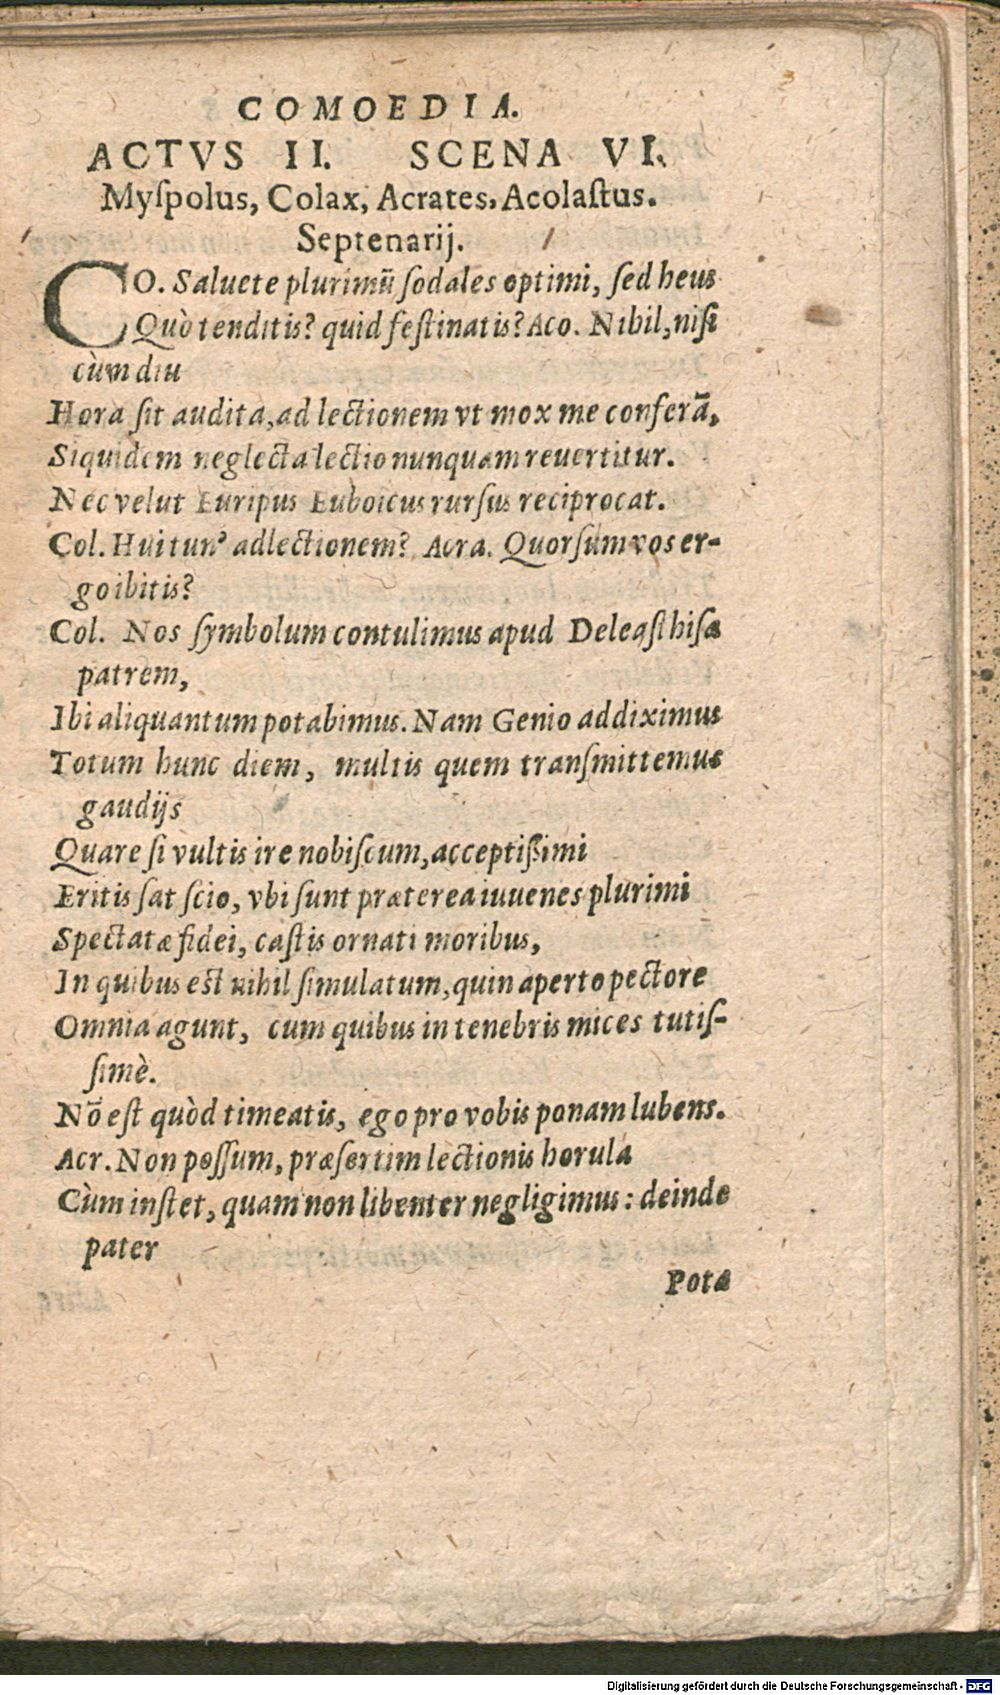 COMOEDIA.
ACTVS II. SCENA VI.
Myſpolus, Colax, Acrates, Acolaſtus.
Septenarij.
CO. Saluete plurimū ſodales optimi, ſed heus
Quò tenditis? quid feſtinatis? Aco. Nihil, niſi
cùm diu
Hora ſit audita, ad lectionem vt mox me conferā,
Siquidem neglecta lectio nunquam reuertitur.
Nec velut Euripus Euboicus rurſus reciprocat.
Col. Hui tun' ad lectionem? Acra. Quorſum vos er-
go ibitis?
Col. Nos ſymbolum contulimus apud Deleaſthiſa
patrem,
Ibi aliquantum potabimus. Nam Genio addiximus
Totum hunc diem, multis quem tranſmittemus
gaudijs
Quare ſi vultis ire nobiſcum, acceptiſsimi
Eritis ſat ſcio, vbi ſunt præterea iuuenes plurimi
Spectatæ fidei, caſtis ornati moribus,
In quibus eſt nihil ſimulatum, quin aperto pectore
Omnia agunt, cum quibus in tenebris mices tutiſ-
ſimè.
Nō eſt quòd timeatis, ego pro vobis ponam lubens.
Acr. Non poſſum, præſertim lectionis horula
Cùm inſtet, quam non libenter negligimus: deinde
pater
Pota
Digitalisierung gefördert durch die Deutsche Forschungsgemeinschaft - DFG